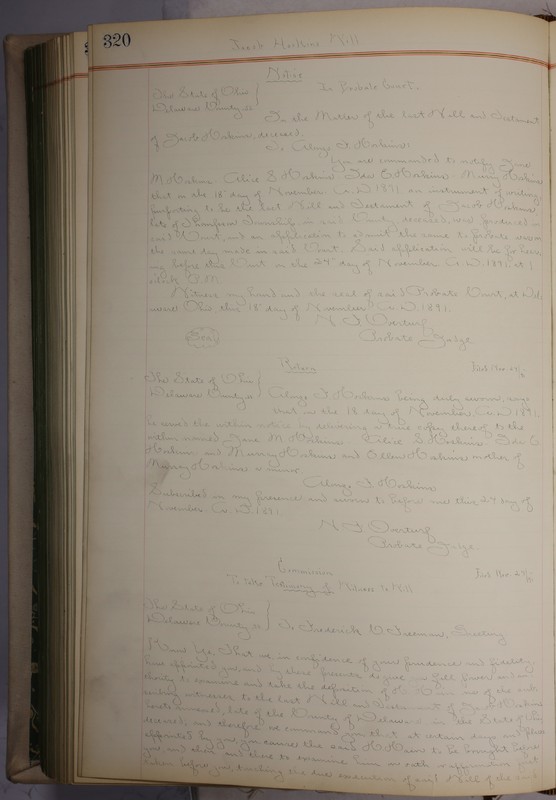 320
Jacob Hoskins Will
Notice
The State of Ohio
Delaware County ss
In Probate Court.
In the Matter of the last Will and Testament
of Jacob Hoskins, deceased.
To Alonzo J Hoskins:
You are commanded to notify Jane
M Hoskins Alice S Hoskins Murray Hoskins
that on the 18" day of November A.D. 1891 an instrument of writing
purporting to be the last Will and Testament of Jacob Hoskins,
late of Thompson Township in said County deceased, was produced in
said Court, and an application to admit the same to Probate was on
the same day made in said Court. Said application will be for hear-
ing before this Court on the 24" day of November A.D. 1891, at 1
o'clock P.M.
Witness my hand and the seal of said Probate Court, at Del-
aware Ohio this 18" day of November A.D. 1891.
Seal
Overturf
Probate Judge
Return
The State of Ohio
Delaware County ss
Alonzo J Hoskins being duly sworn, says
that on the 18 day of November A.D. 1891.
he served the within notice by delivering a true copy thereof to the
within named Jane M Hoskins Alice S Hoskins
Hoskins and Murray Hoskins and Ellen Hoskins mother of
Murray Hoskins a minor.
Alonzo J Hoskins
Subscribed in my presence and sworn to before me this 24 day of
November A.D. 1891
Overturf
Probate Judge
Commission
To take Testimony of Witness to Will
The State of Ohio
Delaware County ss
To Frederick Freeman, Greeting
Know Ye, That we, in confidence of your prudence and fidelity
have appointed you, and by these presents do give you full power and au-
thority to examine and take the deposition of one of the sub-
scribing witnesses to the last Will and Testament of Jacob Hoskins
late of the County of Delaware in the State of Ohio
deceased; and therefore we command you, that at certain days and places
appointed by you, you cause the said to be brought before
you, and then and there to examine him on oath or affirmation first
taken before you, touching the due execution of said Will of the said